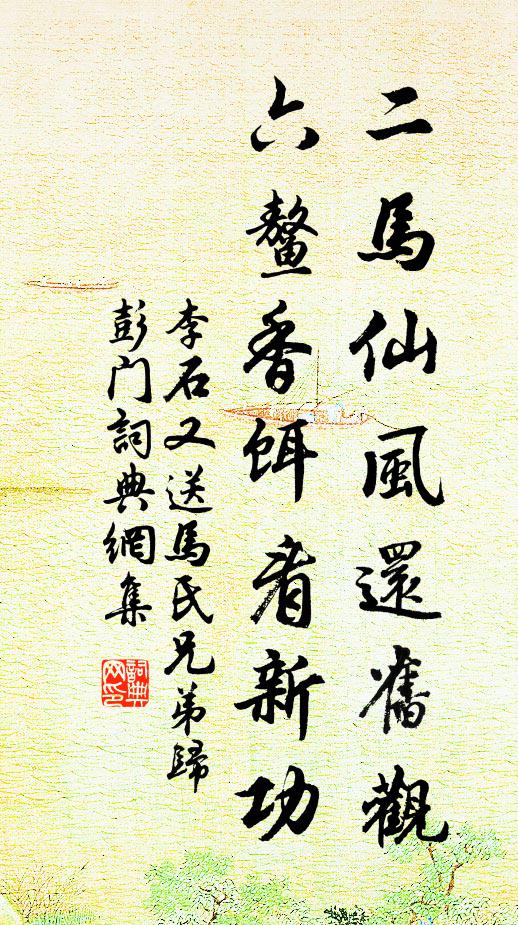 二馬仙風還舊觀
六鰲香餌看新功
李石又送馬氏兄弟歸
彭门詞典網集
詞典
网印